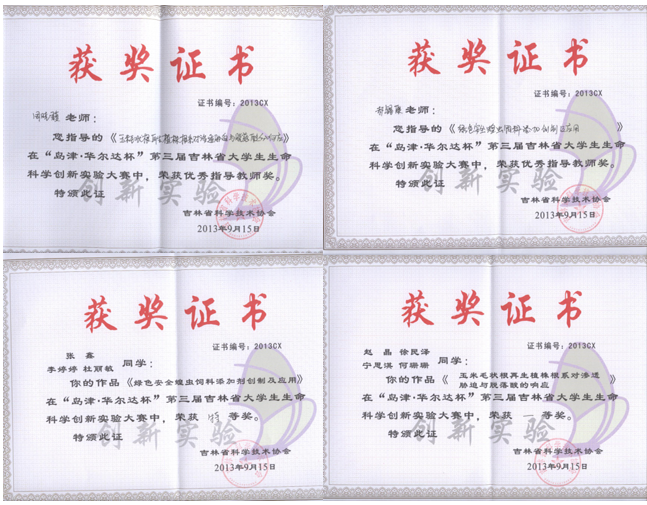 获奖证书
证书编号：2013CX
老师：
您指导的《玉米毛状根再生植株根系对渗透胁迫与脱落酸的响应》
在“岛津·华尔达杯”第三届吉林省大学生生命
科学创新实验大赛中，荣获优秀指导教师奖。
特颁此证
创新实验
吉林省科学技术协会
2013年9月15日
获奖证书
证书编号：2013CX
老师：
您指导的《绿色安全螨虫饲料添加剂创制及应用》
在“岛津·华尔达杯”第三届吉林省大学生生命
科学创新实验大赛中，荣获优秀指导教师奖。
特颁此证
创新实验
吉林省科学技术协会
2013年9月15日
获奖证书
证书编号：2013CX
张鑫
李婷婷 杜丽敏 同学：
你的作品《绿色安全蝗虫饲料添加剂创制及应用》
在“岛津·华尔达杯”第三届吉林省大学生生命
科学创新实验大赛中，荣获 特 等奖。
特颁此证
创新实验
吉林省科学技术协会
2013年9月15日
获奖证书
证书编号：2013CX
赵晶 徐民泽
宁思淇 何珊珊 同学：
你的作品《玉米毛状根再生植株根系对渗透
胁迫与脱落酸的响应》
在“岛津·华尔达杯”第三届吉林省大学生生命
科学创新实验大赛中，荣获 一 等奖。
特颁此证
创新实验
吉林省科学技术协会
2013年9月15日